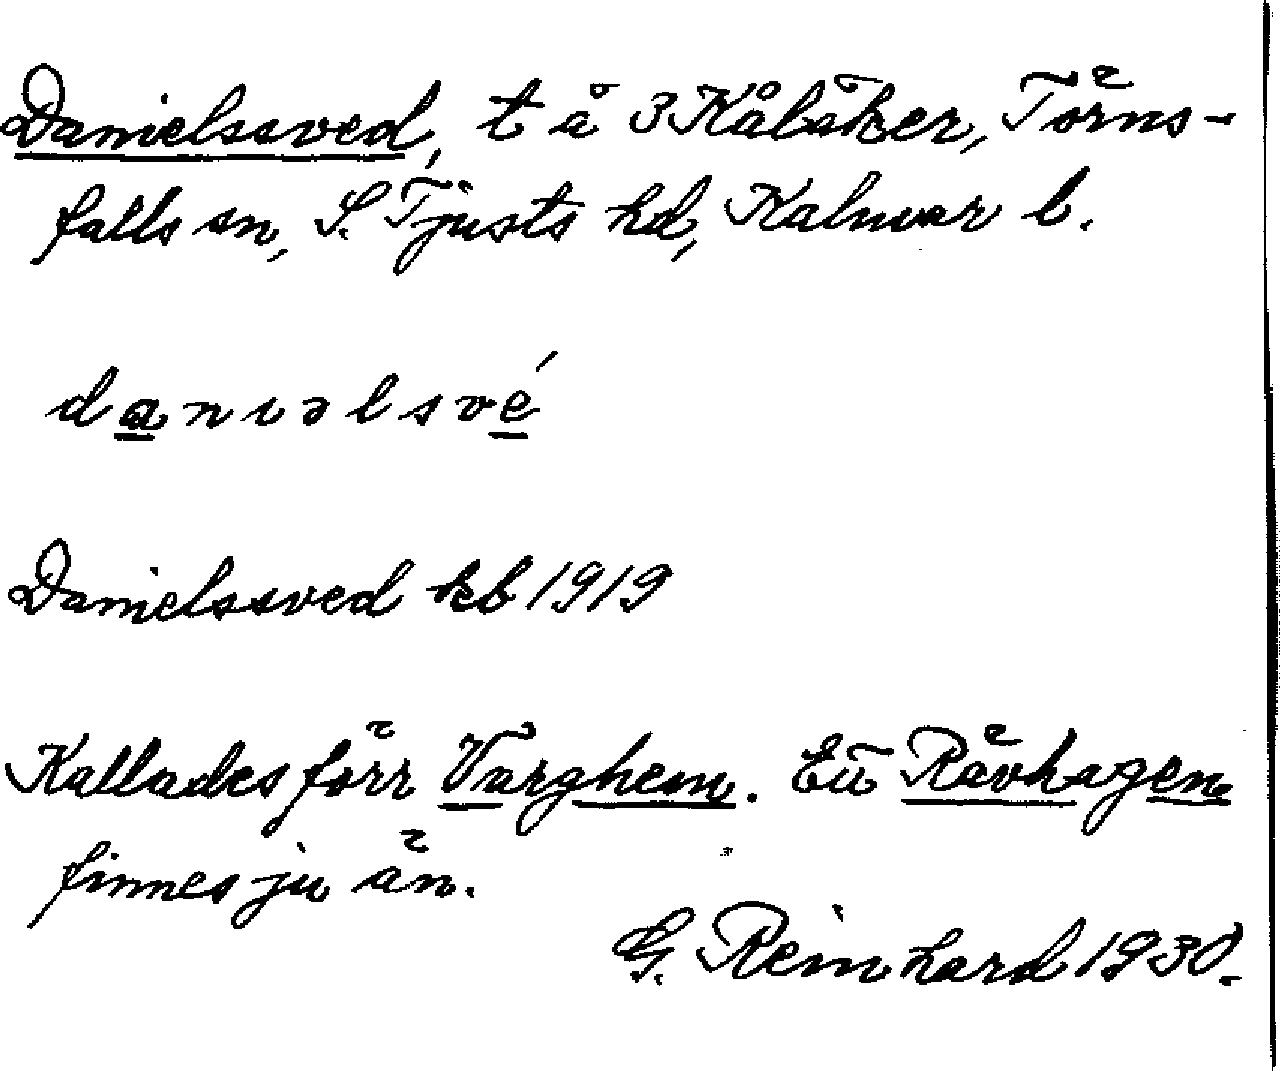 Danielssved, t å 3 Kålsåker, Törns-
falls sn, S. Tjusts hd, Kalmar l.
danıəlsvé
Danielssved kb 1919
Kallades förr Varghem. En Rävhagen
finnes ju än.
G. Reinhard 1930.